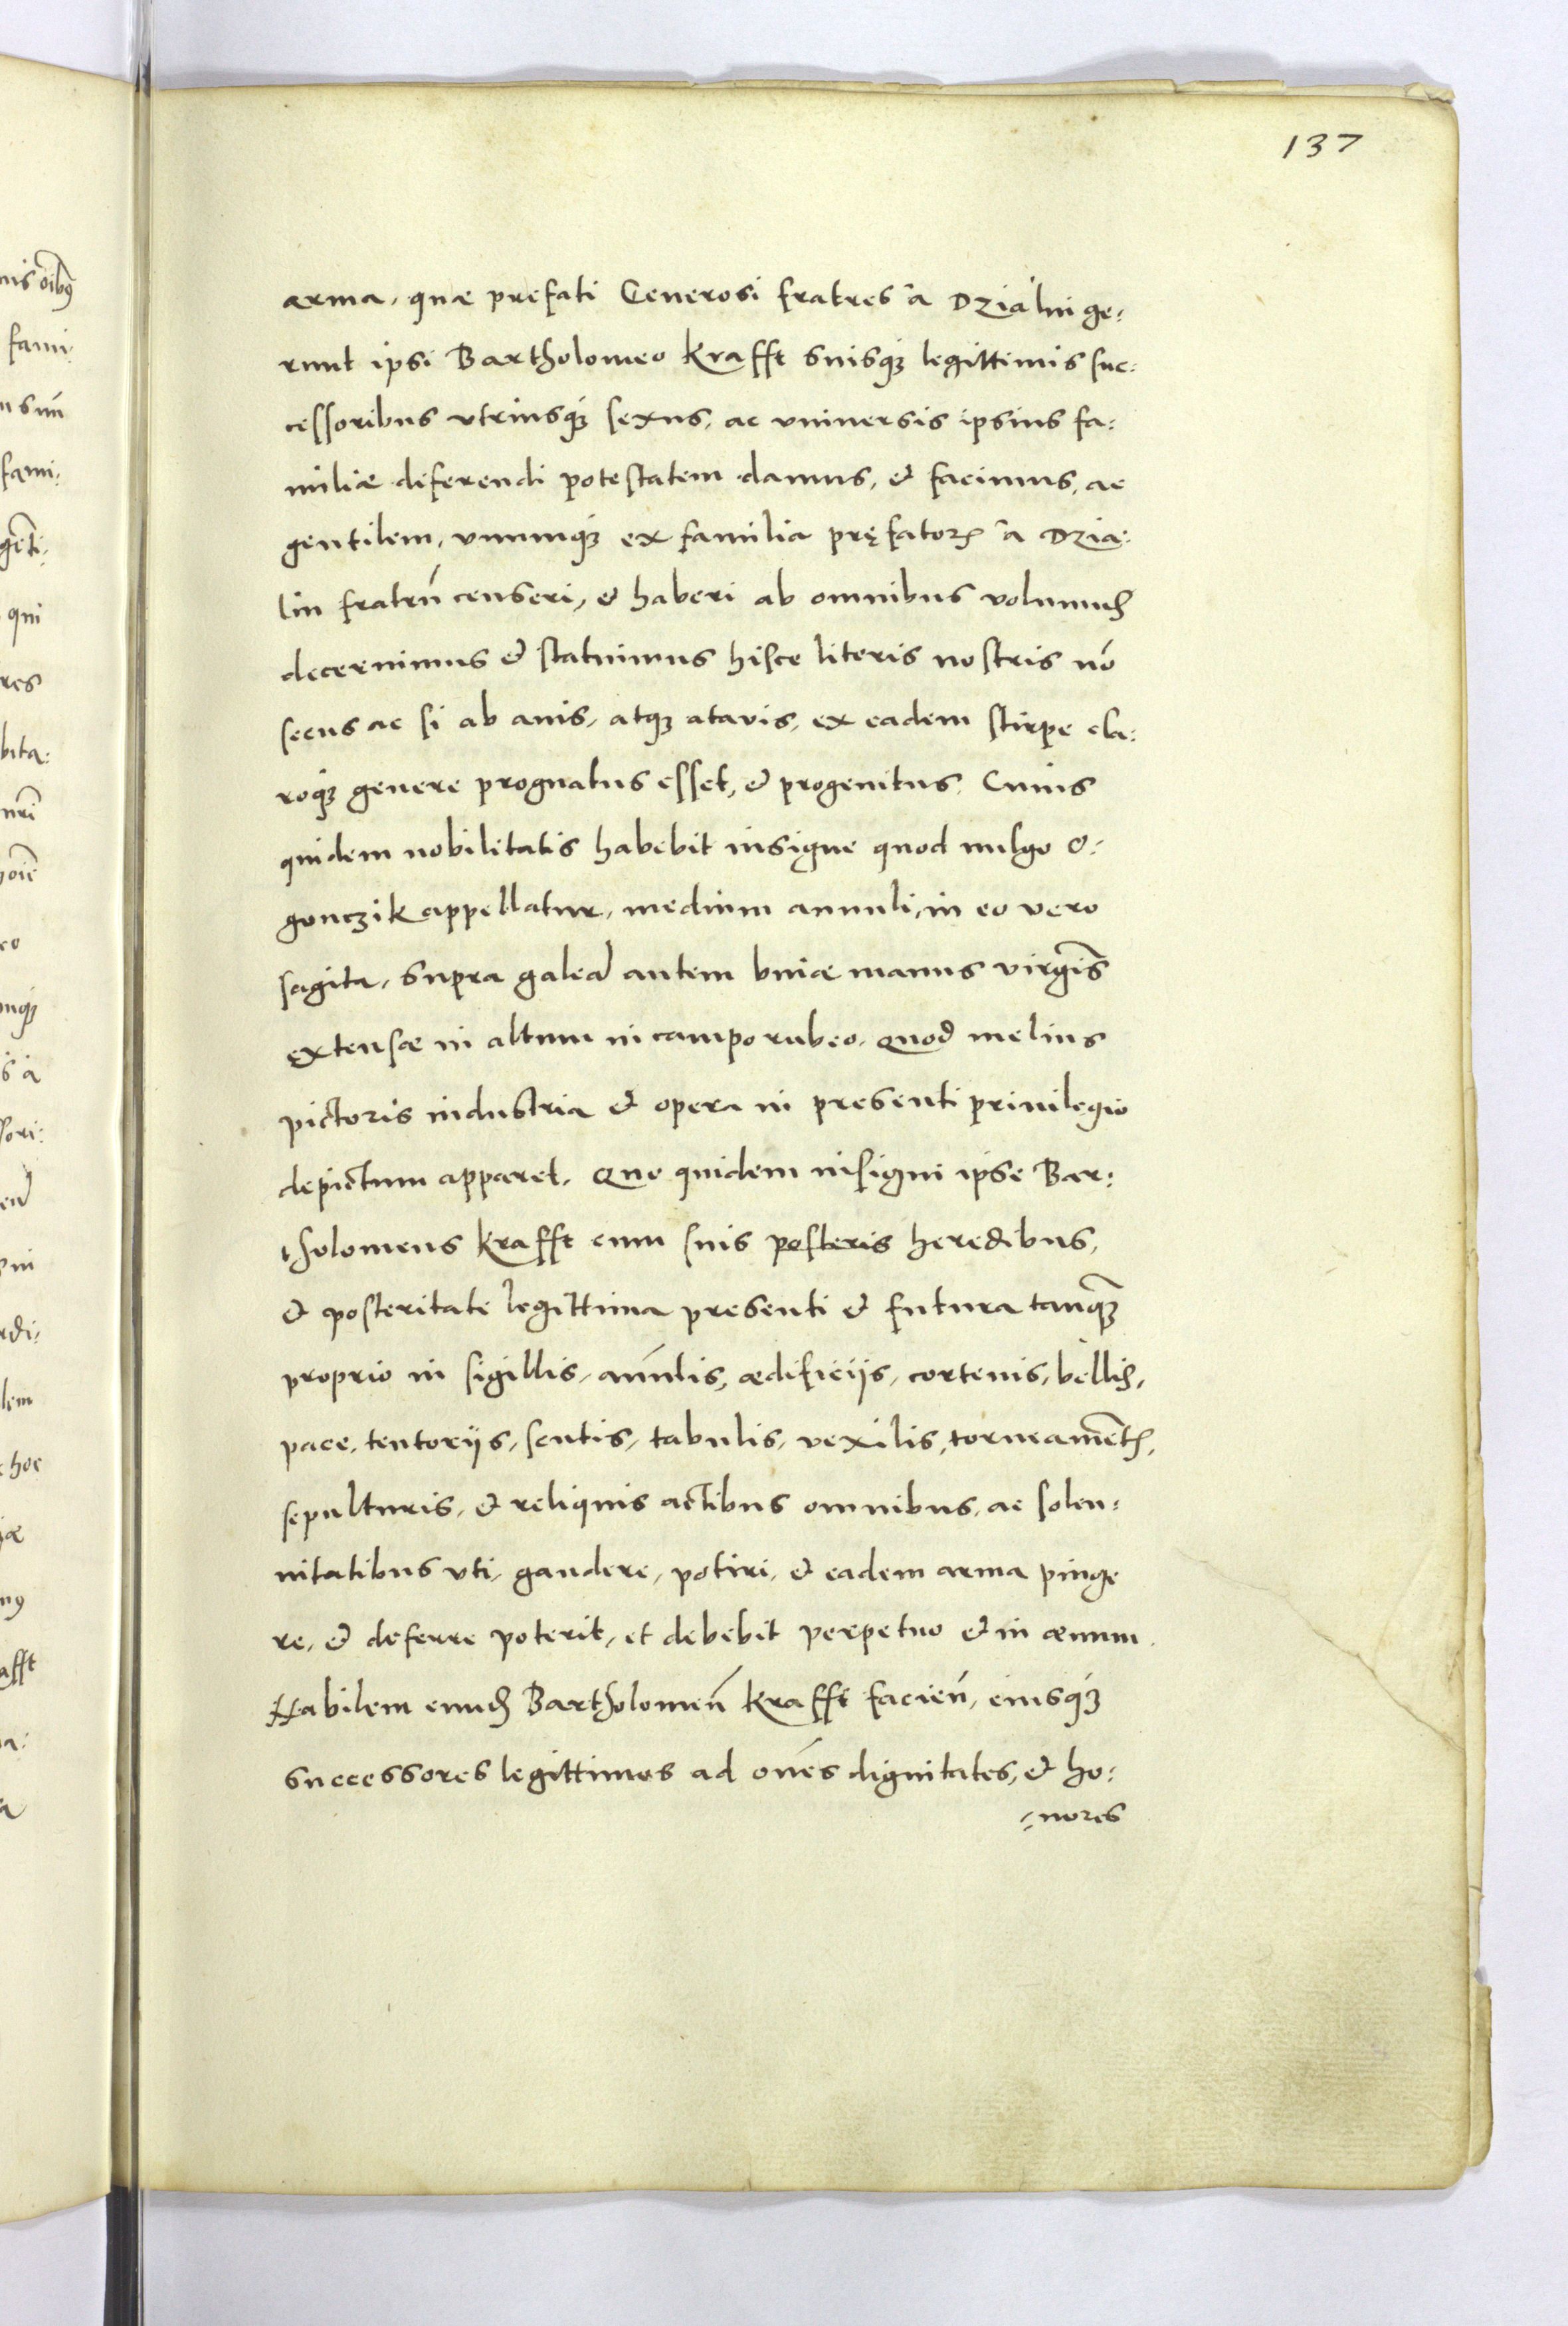 137
arma, quæ prefati Generosi fratres a Dzialin ge:
runt ipsi Bartholomeo Krafft suisq́ꝫ legittimis suc:
cessoribus vtriusq́ꝫ sexus, ac vniuersis ipsius fa:
miliæ diferendi potestatem damus, & facimus, ac
gentilem, vnumq́ꝫ ex familia pręfatorꝝ a Dzia:
lin fratrū censeri, & haberi ab omnibus volumus
decernimus & statuimus hisce literis nostris nō
secus ac si ab auis, atqꝫ atavis, ex eadem stirpe cla:
roq́ꝫ genere prognatus esset, & progenitus. Cuius
quidem nobilitatis habebit insigne quod uulgo O:
gonczik appellatur, medium annuli, in eo vero
sagita, supra galea autem binæ manus virgis̃
extensæ in altum in campo rubeo. Quod melius
pictoris industria & opera in presenti priuilegio
depictum apparet. Quo quidem insigni ipse Bar:
tholomeus Krafft cum suis posteris heredibus,
& posteritate legittima presenti & futura tanq̃ꝫ
proprio in sigillis, añulis, ædificijs, cortenis, bellis,
pace, tentorijs, scutis, tabulis, vexilis, torneamẽtis,
sepulturis, & reliquis actibus omnibus, ac solen:
nitatibus vti, gaudere, potiri, & eadem arma pinge
re, & deferre poterit, et debebit perpetuo & in æuum.
Habilem eund Bartholomeū Krafft facieñ, eiusq́ꝫ
successores legittimos ad oñes dignitates, & ho:
:nores
nis oībꝰ
fami:
fami:
gẽti:
qui
res
bita:
nr̃i
eo
is a
sori:
rdi:
lem
hoc
afft